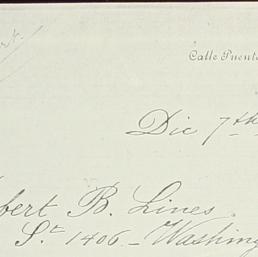 Calle Puente
Dic 7th
bert B. Lines
St 1406 - Washing